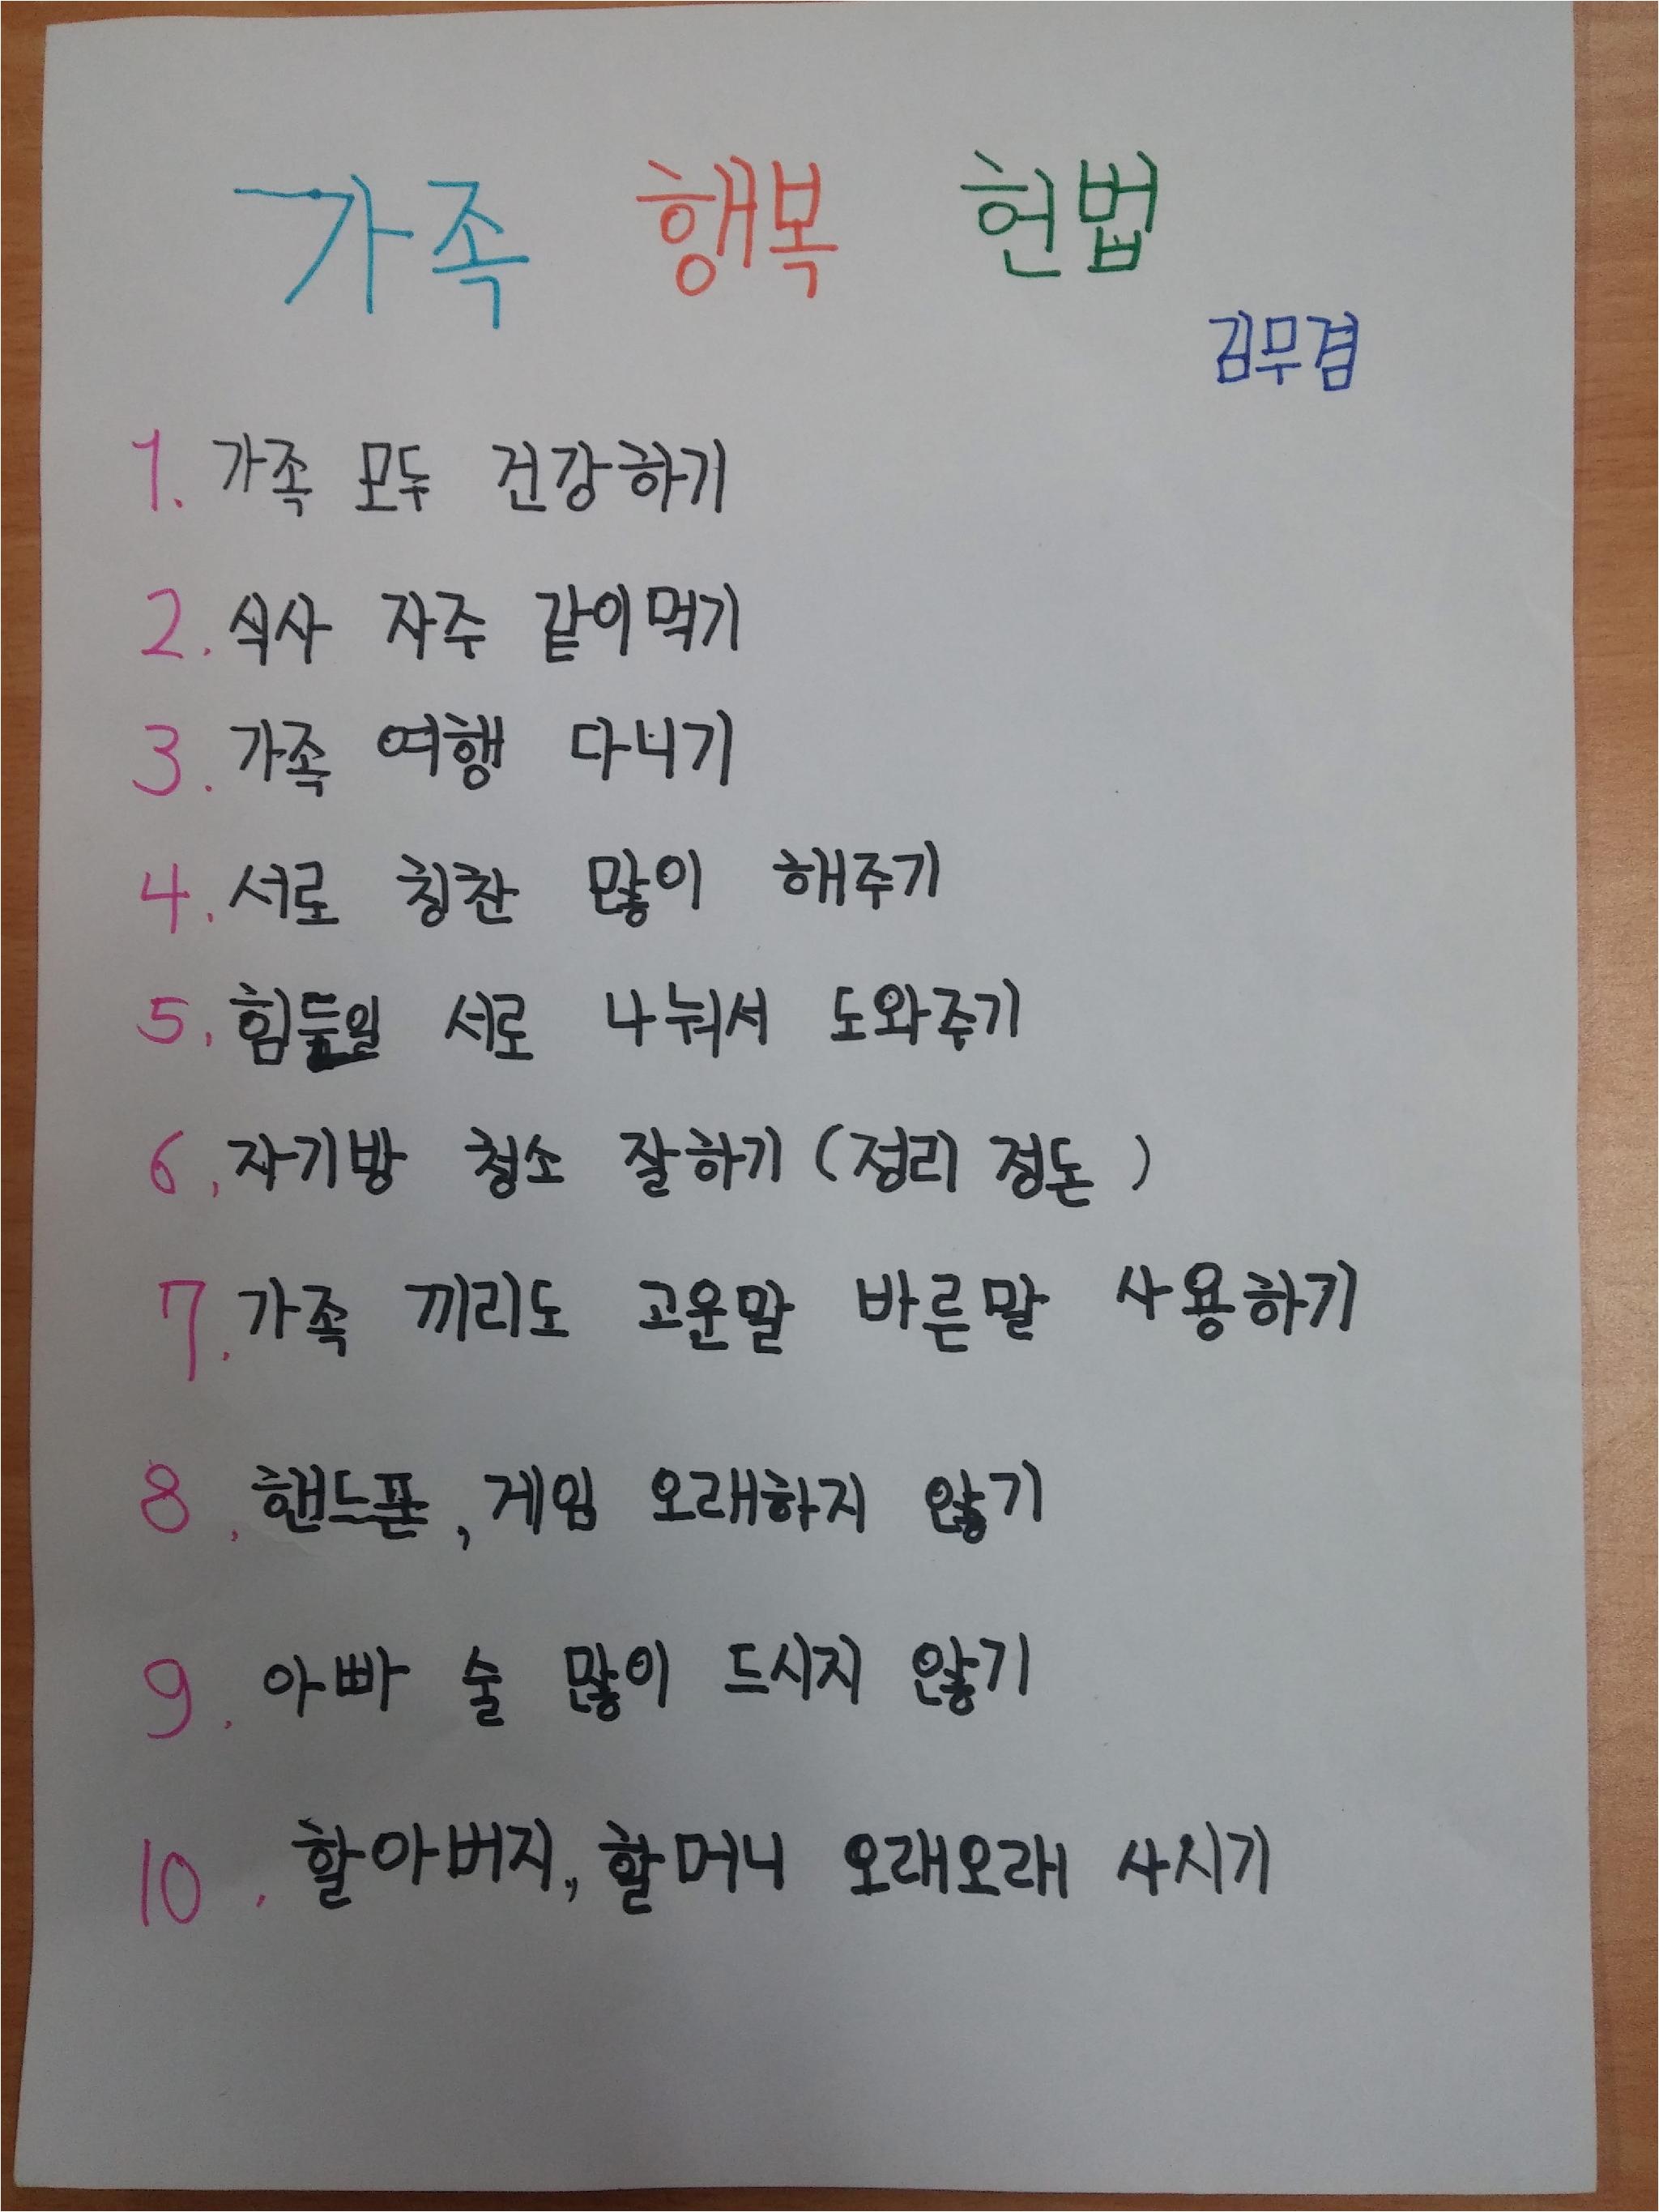 가족 행복 헌법
김무겸
1. 가족 모두 건강하기
2. 식사 자주 같이먹기
3. 가족 여행 다니기
4. 서로 칭찬 많이 해주기
5. 힘든일 서로 나눠서 도와주기
6. 자기방 청소 잘하기 (정리 정돈)
7. 가족 끼리도 고운말 바른말 사용하기
8. 핸드폰, 게임 오래하지 않기
9. 아빠 술 많이 드시지 않기
10. 할아버지, 할머니 오래오래 사시기